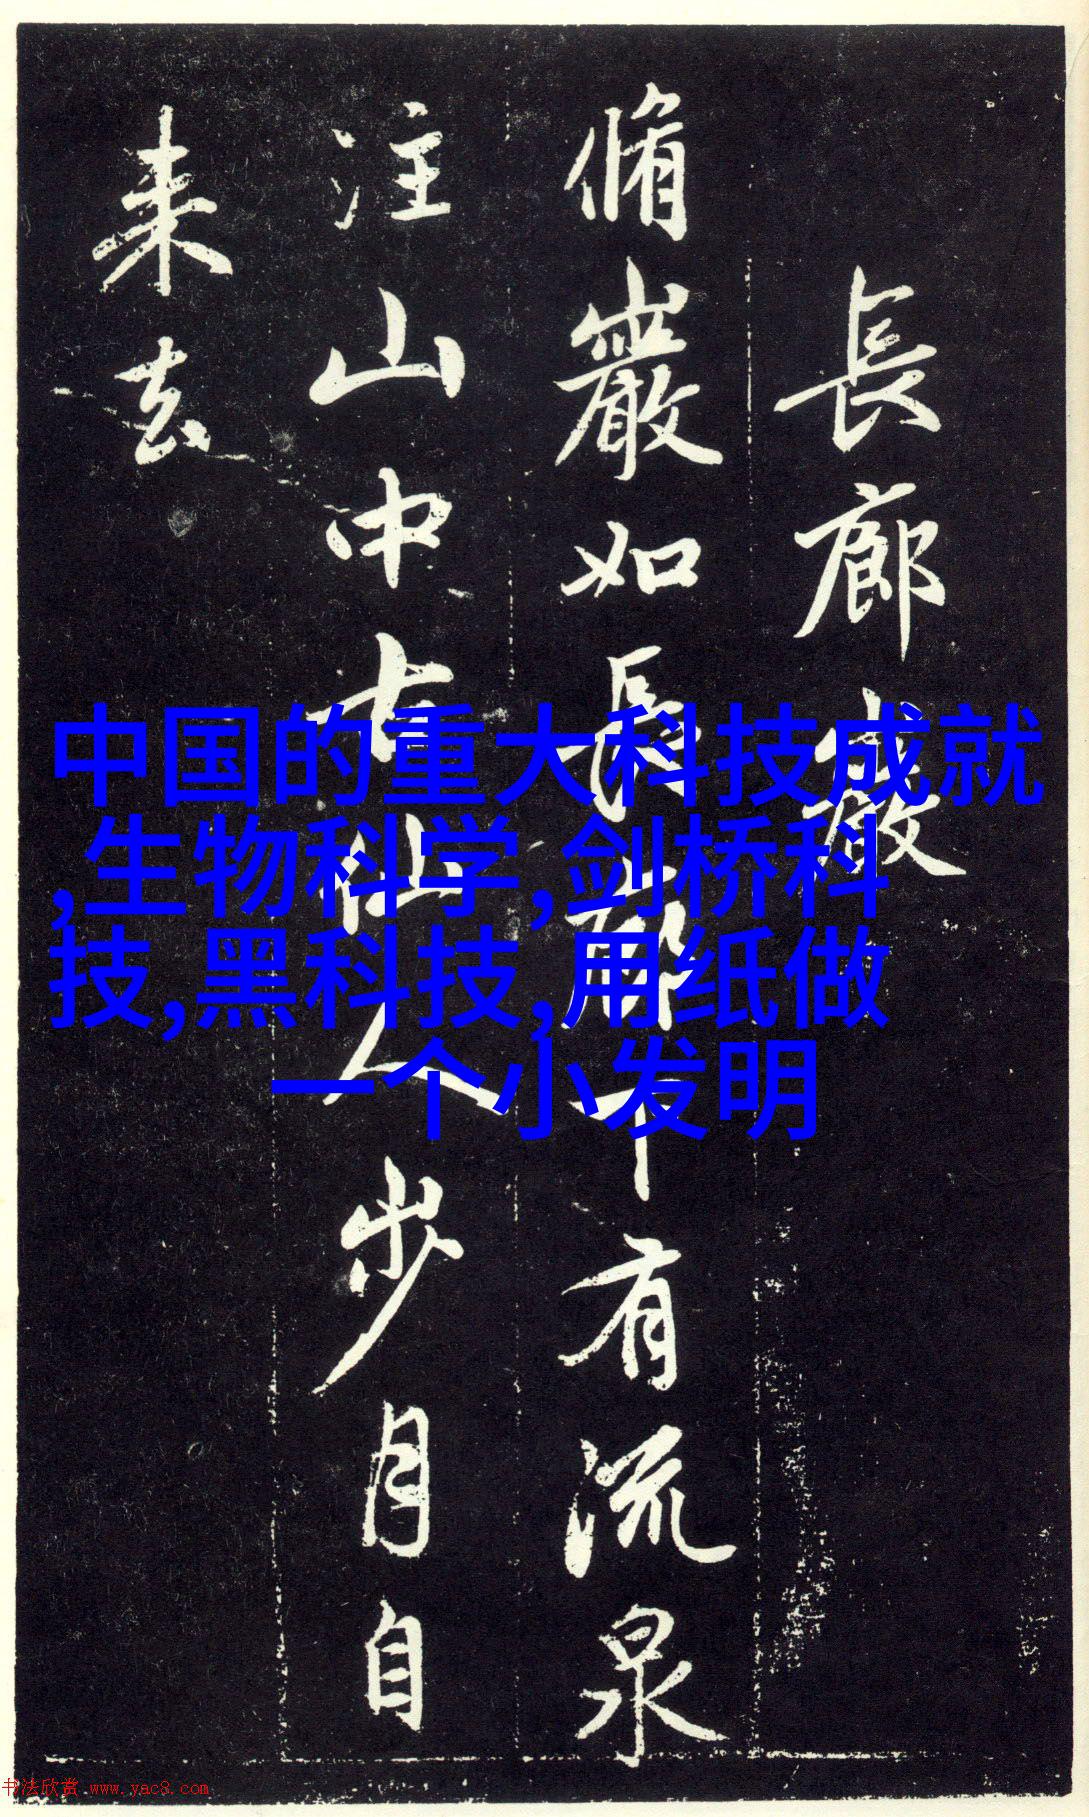 長廊巖
脩巖如長廊下有流泉
注山中古仙人步月自
来去
中国的重大科技成就
,生物科学,剑桥科
技,黑科技,用纸做
一个小发明
书法欣赏 www.yac8.com